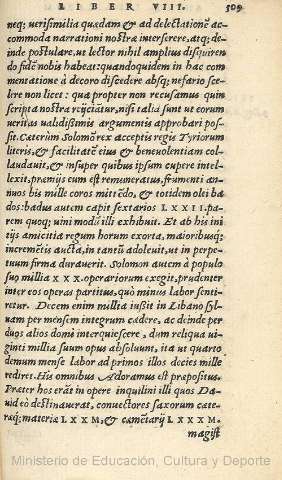 LIBER VIII. 509
neq; uerisimilia quædam & ad delectationē ac-
commoda narrationi nostræ interserere, atq; de-
inde postulare, ut lector nihil amplius disquiren
do fidē nobis habeat: quandoquidem in hac com
mentatione à decoro discedere absq; nefario sce-
lere non licet: qua propter non recusamus quin
scripta nostra reijciātur, nisi talia sunt ut eorum
ueritas ualidissimis argumentis approbari pos-
sit. Cæterùm Solomō rex acceptis regis Tyriorum
literis, & facilitatē eius & beneuolentiam col-
laudauit, & insuper quibus ipsum cupere intel-
lexit, præmijs eum est remuneratus, frumenti an-
nuos bis mille coros mittēdo, & totidem olei ba
dos: badus autem capit sextarios LXXII. pa-
rem quoq; uini modū illi exhibuit. Et ab his ini
tijs amicitia regum horum exorta, maioribusq;
incremētis aucta, in tantū adoleuit, ut in perpe-
tuum firma durauerit. Solomon autem à popu-
lo suo millia XXX. operariorum exegit, prudenter
inter eos operas partitus, quò minus labor senti-
retur. Decem enim millia iußit in Libano syl-
uam per mensem integrum cædere, ac deinde per
duos alios domi interquiescere, dum reliqua ui-
ginti millia suum opus absoluunt, ita ut quarto
denum mense labor ad primos illos decies mille
rediret. His omnibus Adoramus est præpositus.
Præter hos erāt in opere inquilini illi quos Da-
uid eò destinauerat, conuectores saxorum cæte-
ræq; materiæ LXXM, & cæmētarij LXXXM.
magist
Ministerio de Educación, Cultura y Deporte